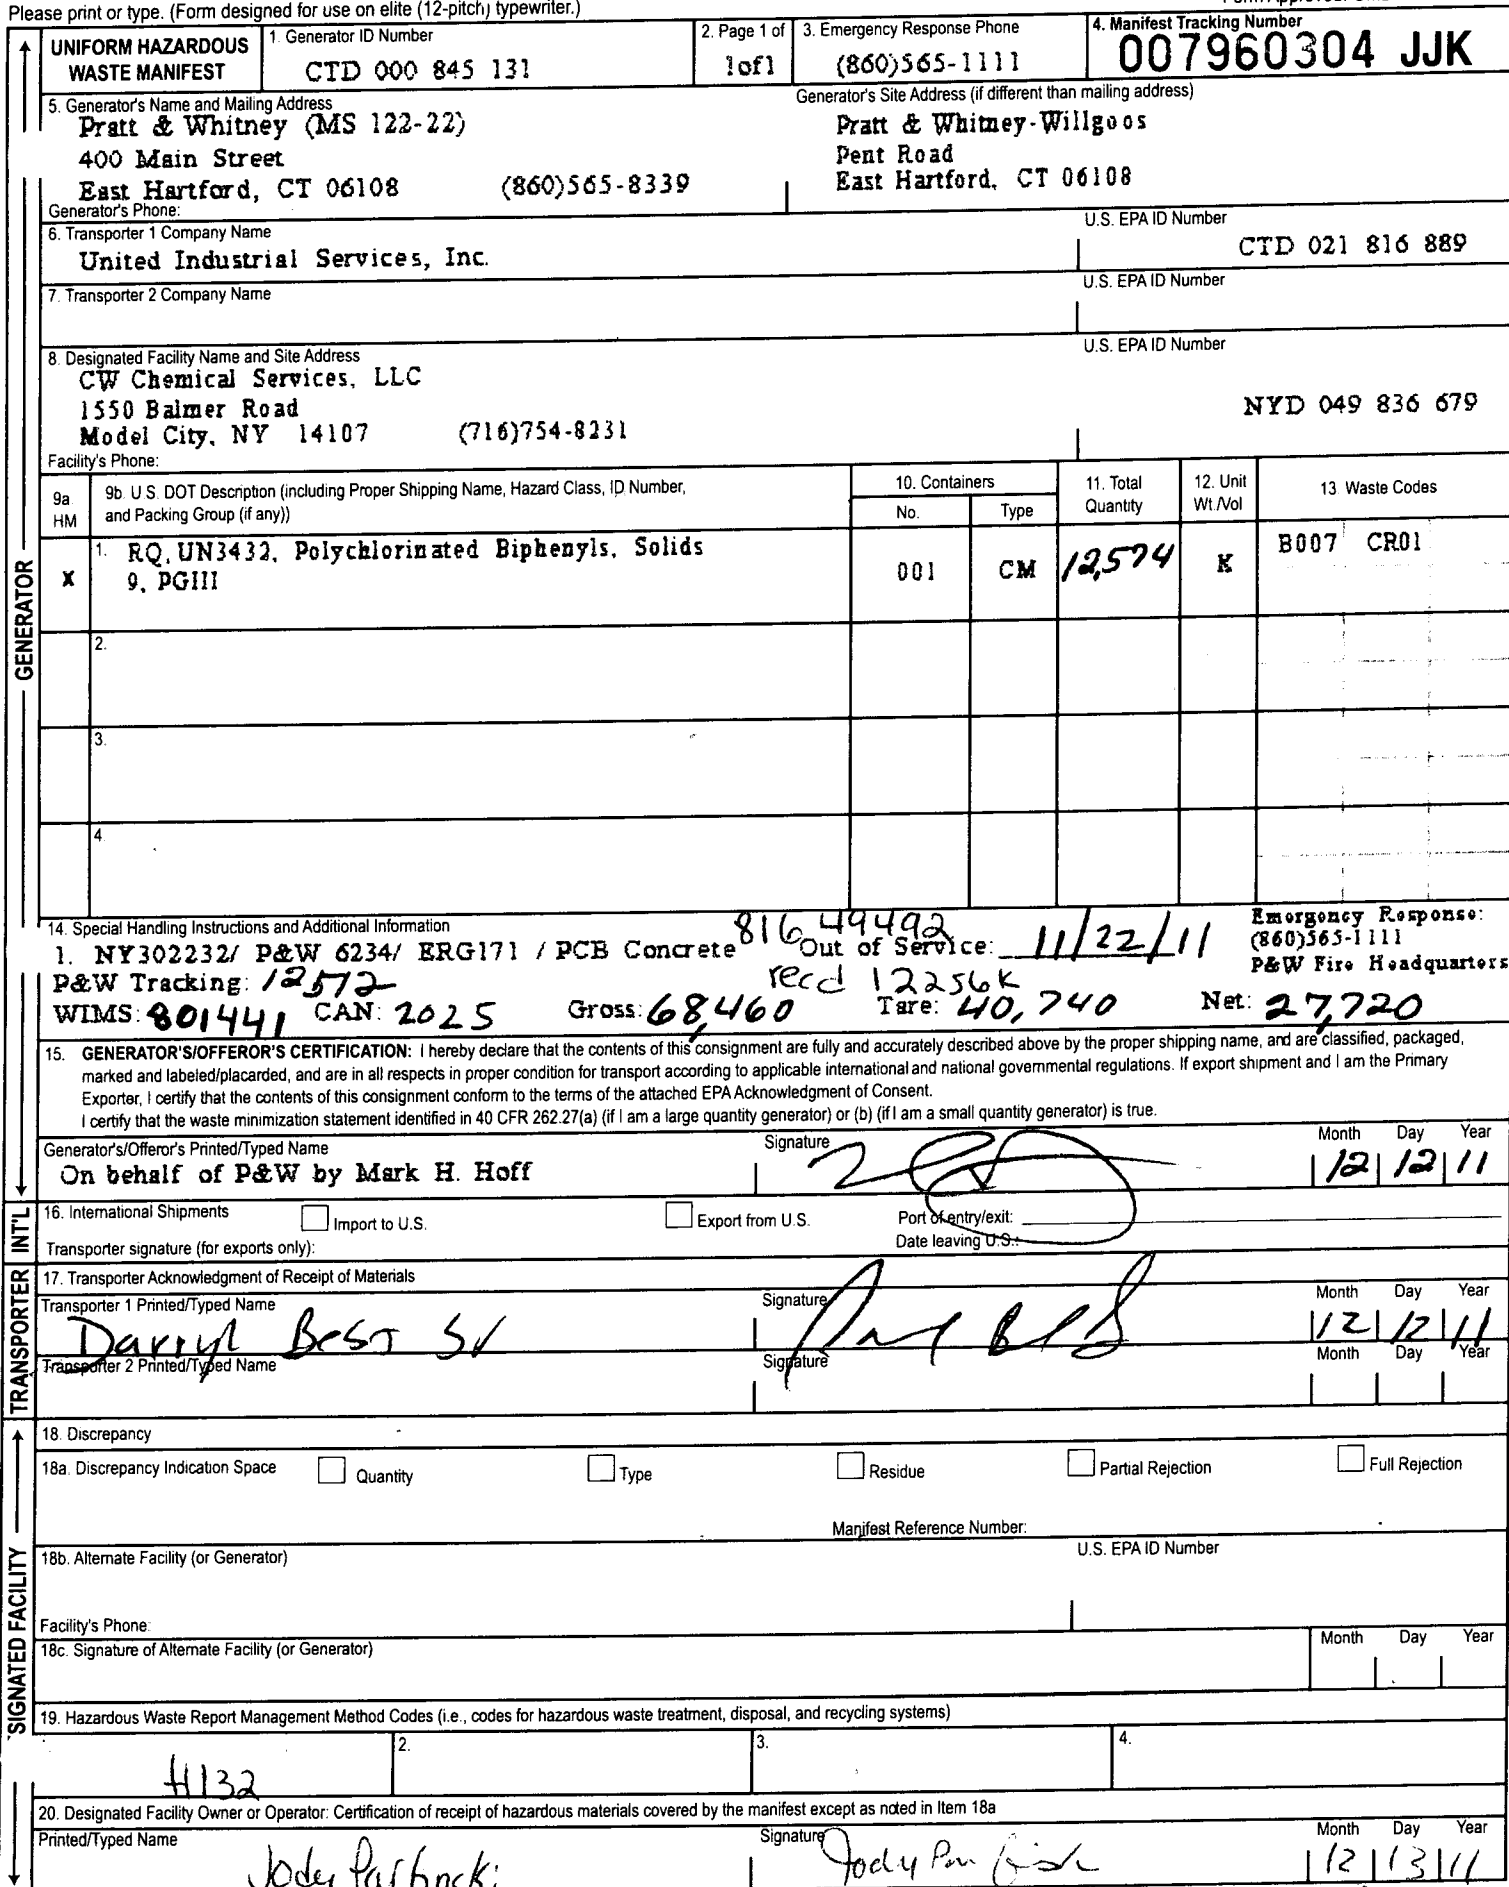 Please print or type. (Form designed for use on elite (12-pitch) typewriter.)
UNIFORM HAZARDOUS WASTE MANIFEST
1. Generator ID Number
CTD 000 845 131
2. Page 1 of
1of1
3. Emergency Response Phone
(860)565-1111
4. Manifest Tracking Number
007960304 JJK
5. Generator's Name and Mailing Address
Pratt & Whitney (MS 122-22)
400 Main Street
East Hartford, CT 06108 (860)565-8339
Generator's Phone:
Generator's Site Address (if different than mailing address)
Pratt & Whitney-Willgoos
Pent Road
East Hartford, CT 06108
6. Transporter 1 Company Name
United Industrial Services, Inc.
U.S. EPA ID Number
CTD 021 816 889
7. Transporter 2 Company Name
U.S. EPA ID Number
8. Designated Facility Name and Site Address
CW Chemical Services, LLC
1550 Balmer Road
Model City, NY 14107 (716)754-8231
Facility's Phone:
U.S. EPA ID Number
NYD 049 836 679
9a. HM
9b. U.S. DOT Description (including Proper Shipping Name, Hazard Class, ID Number, and Packing Group (if any))
10. Containers
No.
Type
11. Total Quantity
12. Unit Wt./Vol
13. Waste Codes
X
1. RQ, UN3432, Polychlorinated Biphenyls, Solids
9, PGIII
001
CM
12,574
K
B007 CR01
2.
3.
4.
14. Special Handling Instructions and Additional Information
816 49492
1. NY302232/ P&W 6234/ ERG171 / PCB Concrete Out of Service: 11/22/11
Emergency Response:
(860)565-1111
P&W Fire Headquarters
P&W Tracking: 12572
recd 12256K
WIMS: 801441 CAN: 2025 Gross: 68,460 Tare: 40,740 Net: 27,720
15. GENERATOR'S/OFFEROR'S CERTIFICATION: I hereby declare that the contents of this consignment are fully and accurately described above by the proper shipping name, and are classified, packaged,
marked and labeled/placarded, and are in all respects in proper condition for transport according to applicable international and national governmental regulations. If export shipment and I am the Primary
Exporter, I certify that the contents of this consignment conform to the terms of the attached EPA Acknowledgment of Consent.
I certify that the waste minimization statement identified in 40 CFR 262.27(a) (if I am a large quantity generator) or (b) (if I am a small quantity generator) is true.
Generator's/Offeror's Printed/Typed Name
On behalf of P&W by Mark H. Hoff
Signature
Month Day Year
12 12 11
16. International Shipments
Import to U.S.
Export from U.S.
Port of entry/exit:
Transporter signature (for exports only):
Date leaving U.S.:
17. Transporter Acknowledgment of Receipt of Materials
Transporter 1 Printed/Typed Name
Darryl Best Sr
Signature
Month Day Year
12 12 11
Transporter 2 Printed/Typed Name
Signature
Month Day Year
18. Discrepancy
18a. Discrepancy Indication Space
Quantity
Type
Residue
Partial Rejection
Full Rejection
Manifest Reference Number:
18b. Alternate Facility (or Generator)
U.S. EPA ID Number
Facility's Phone:
18c. Signature of Alternate Facility (or Generator)
Month Day Year
19. Hazardous Waste Report Management Method Codes (i.e., codes for hazardous waste treatment, disposal, and recycling systems)
H132
2.
3.
4.
20. Designated Facility Owner or Operator: Certification of receipt of hazardous materials covered by the manifest except as noted in Item 18a
Printed/Typed Name
Jody
Signature
Jody
Month Day Year
12 13 11
GENERATOR
INT'L
TRANSPORTER
SIGNATED FACILITY